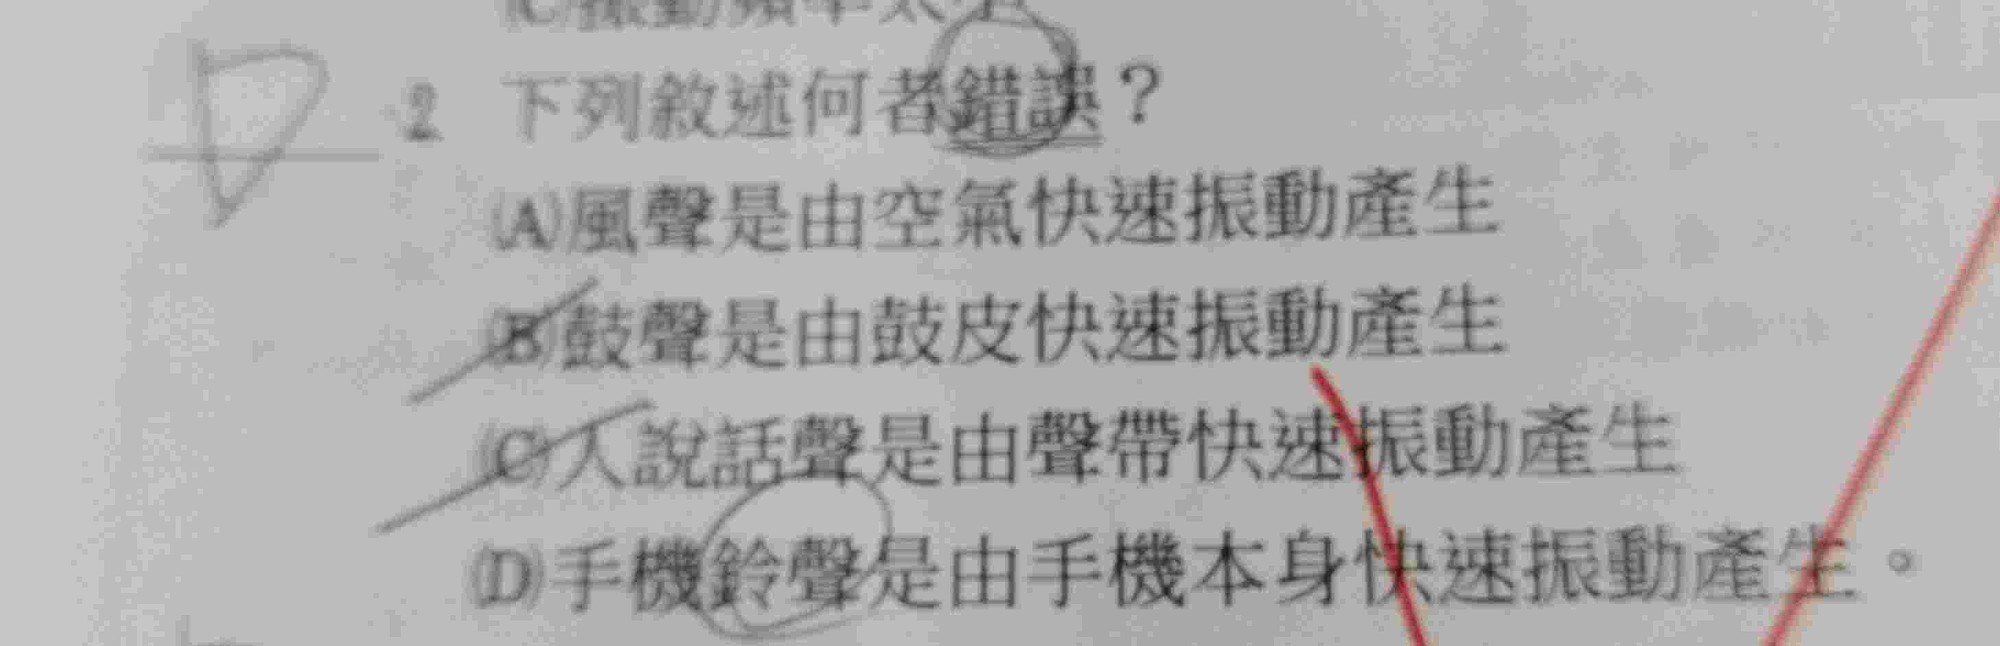 (C)振動頻率太
D 2 下列敘述何者錯誤？
(A)風聲是由空氣快速振動產生
(B)鼓聲是由鼓皮快速振動產生
(C)人說話聲是由聲帶快速振動產生
(D)手機鈴聲是由手機本身快速振動產生。